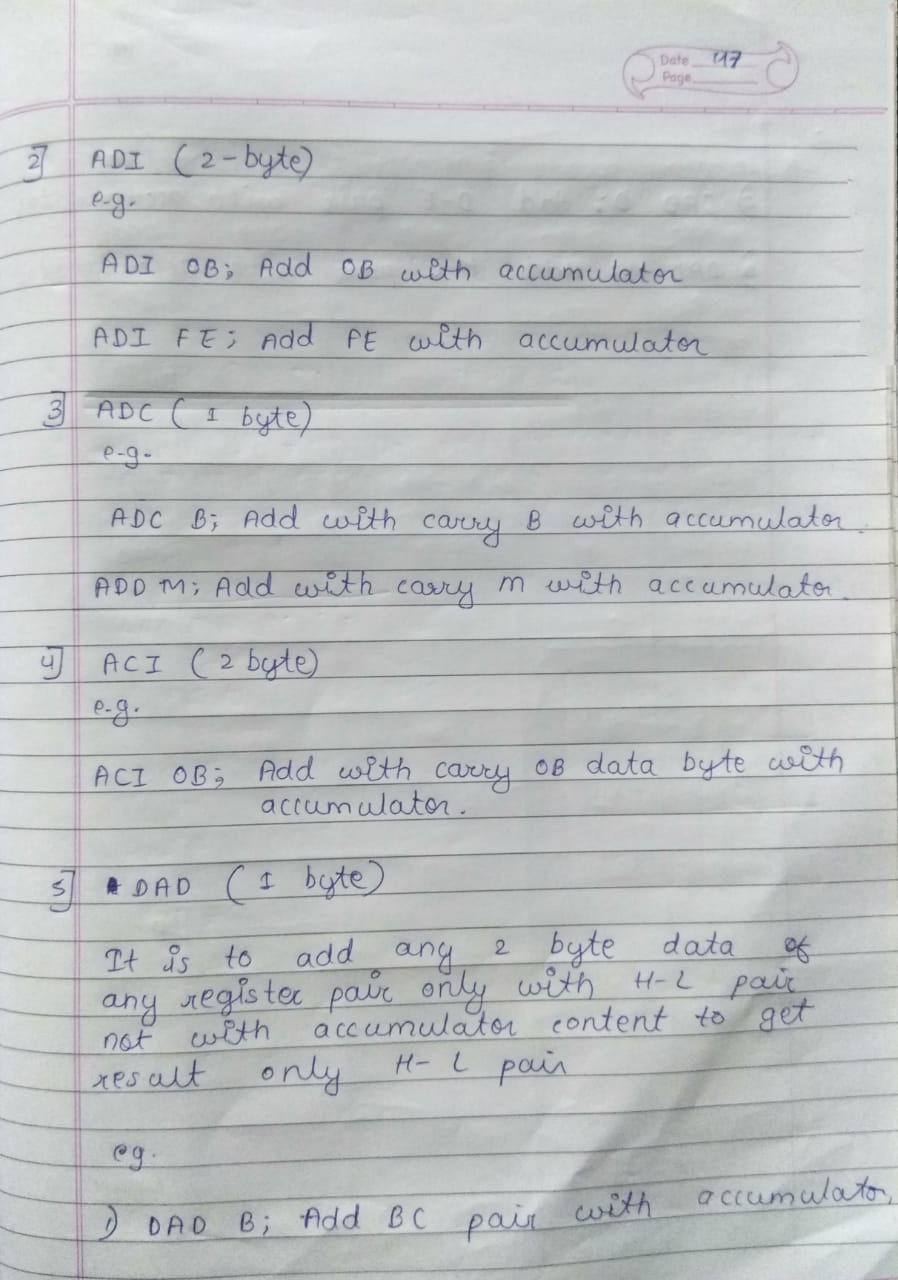 Date 47
Page
2] ADI (2-byte)
e.g.
ADI OB; Add OB with accumulator
ADI FE; Add FE with accumulator
3] ADC (1 byte)
e.g.
ADC B; Add with carry B with accumulator.
ADD M; Add with carry m with accumulator.
4] ACI (2 byte)
e.g.
ACI OB; Add with carry OB data byte with
accumulator.
5] DAD (1 byte)
It is to add any 2 byte data of
any register pair only with H-L pair
not with accumulator content to get
result only H-L pair
eg.
1) DAD B; Add BC pair with accumulator,